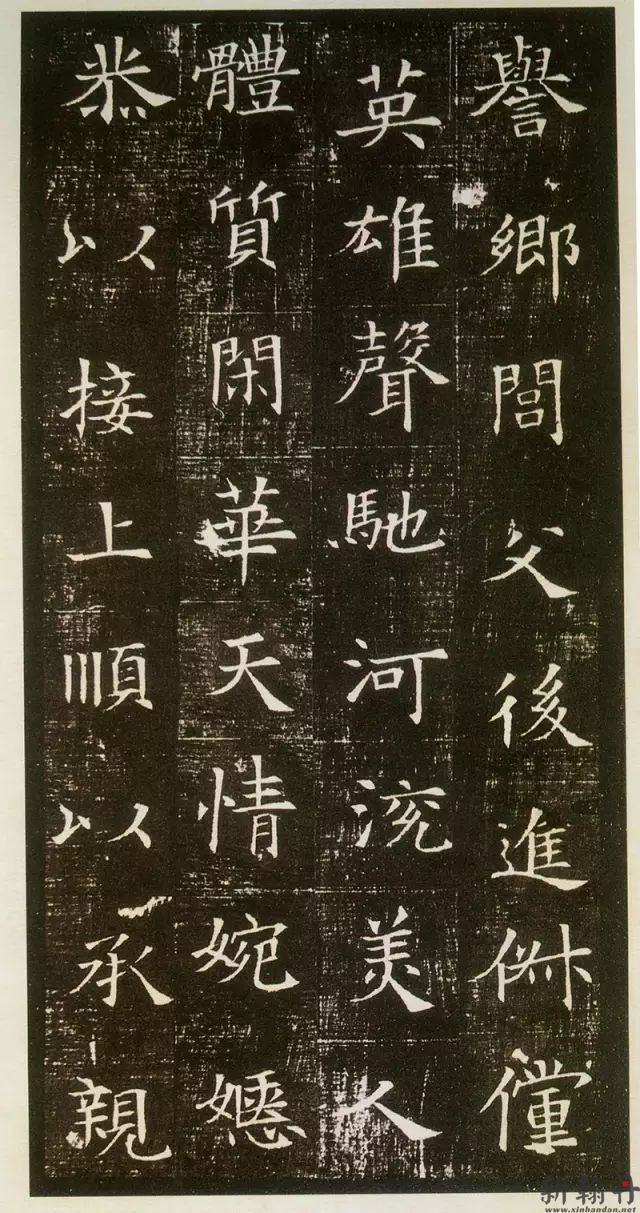 譽鄉閭父後進俶儻
英雄聲馳河渷美人
體質閑華天情婉嫕
恭以接上順以承親
新翰丹
www.xinhandan.net